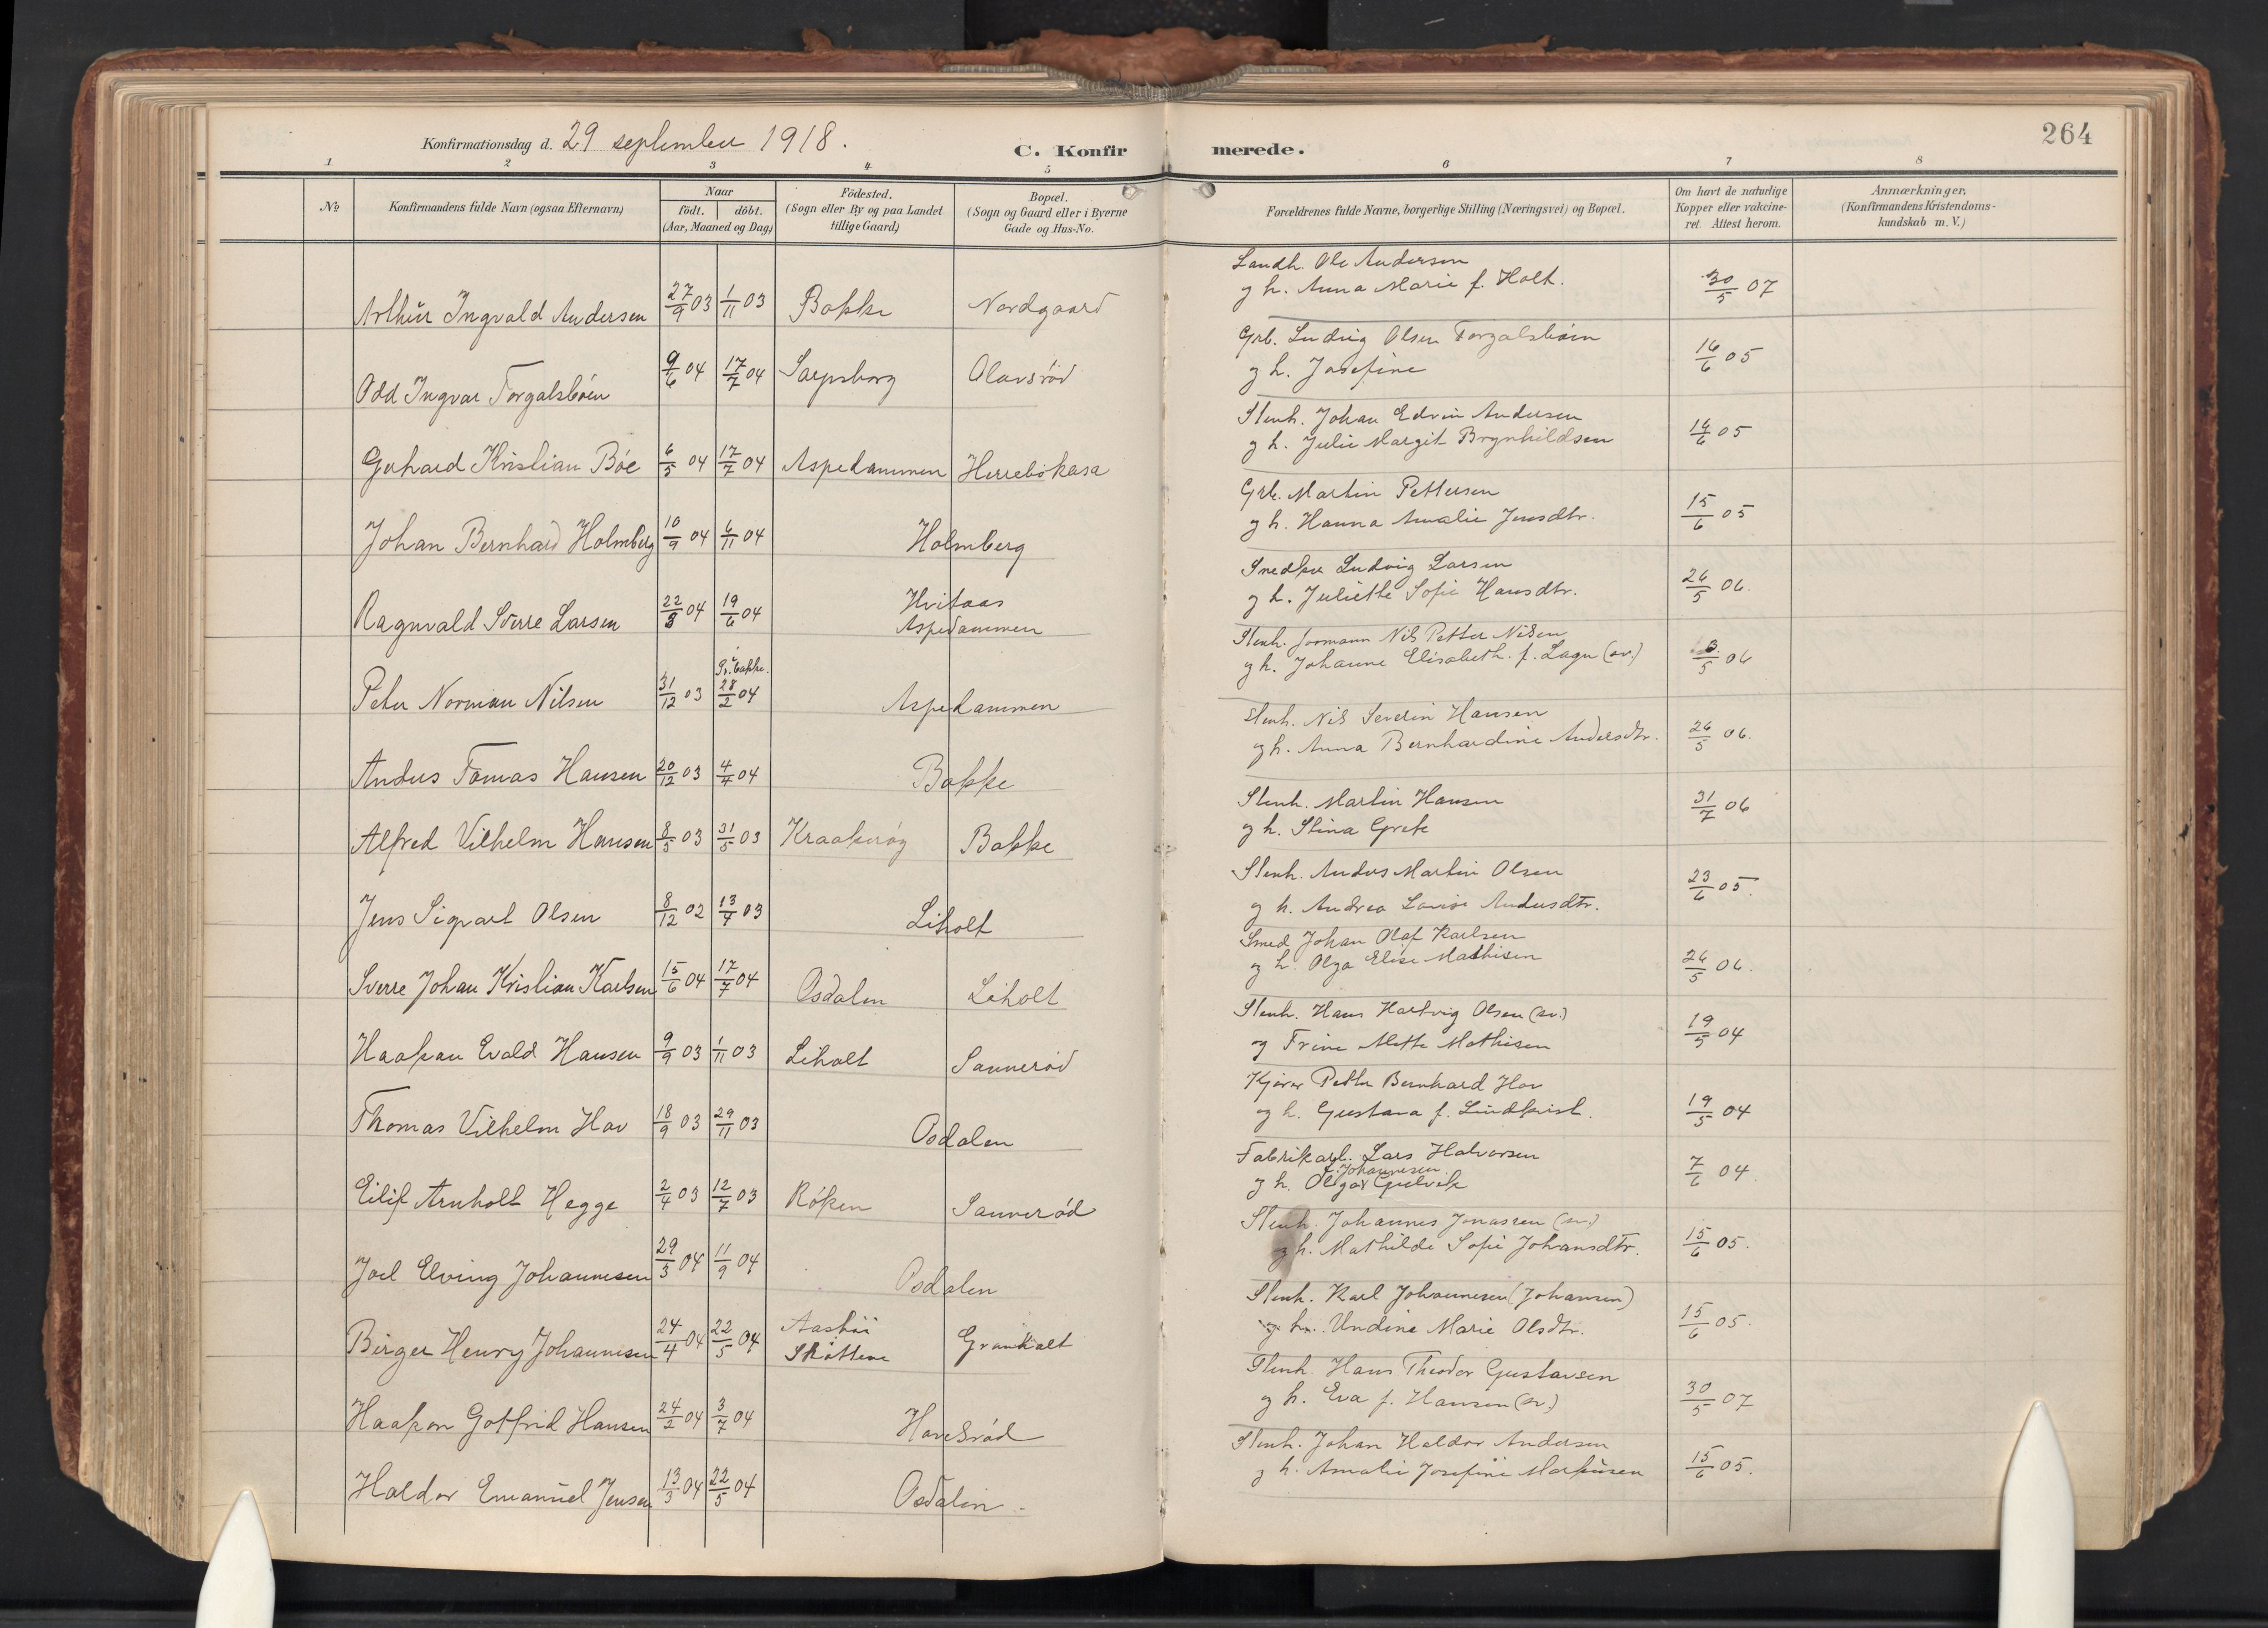 264
Konfirmationsdag d. 29 september 1918.
C. Konfirmerede.
1 2 3 4 5 6 7 8
No
Konfirmandens fulde Navn (ogsaa Efternavn)
Naar
født. døbt.
(Aar, Maaned og Dag)
Födested.
(Sogn eller By og paa Landet
tillige Gaard)
Bopæl.
(Sogn og Gaard eller i Byerne
Gade og Hus-No.
Forældrenes fulde Navne, borgerlige Stilling (Næringsvei) og Bopæl.
Om havt de naturlige
Kopper eller vakcine-
ret. Attest herom.
Anmærkninger.
(Konfirmandens Kristendoms-
kundskab m. V.)
Arthur Ingvald Andersen 27/9 03 1/11 03 Bakke Nordgaard
Landh. Ole Andersen
og h. Anna Marie f. Holt. 30/5 07
Odd Ingvar Torgalsbøen 9/6 04 17/7 04 Sarpsborg Olavsrød
Grb. Ludvig Olsen Torgalsbøen
og h. Josefine 16/6 05
Gerhard Kristian Bøe 6/5 04 17/7 04 Aspedammen Herrebøkasa
Stenh. Johan Edvin Andersen
og h. Julie Margit Brynhildsen 14/6 05
Johan Bernhard Holmberg 10/9 04 6/11 04 Holmberg
Grb. Martin Pettersen
og h. Hanna Amalie Jensdtr. 15/6 05
Ragnvald Sverre Larsen 22/3 04 19/6 04 Hvitaas
Aspedammen
Snedker Ludvig Larsen
og h. Juliette Sofie Hansdtr. 26/5 06.
Peter Norman Nilsen 31/12 03 28/2 04 Aspedammen
Stenh. formann Nils Petter Nilsen
og h. Johanne Elisabeth. f. Lagn (sv.) 3/5 06
Anders Tomas Hansen 20/12 03 4/4 04 Bakke
Stenh. Nils Severin Hansen
og h. Anna Bernhardine Andersdtr. 26/5 06.
Alfred Vilhelm Hansen 8/5 03 31/5 03 Kraakerøy Bakke
Stenh. Martin Hansen
og h. Stina Grete 31/7 06
Jens Sigvart Olsen 8/12 02 13/4 03 Liholt
Stenh. Anders Martin Olsen
og h. Andrea Lovise Andersdtr. 23/6 05.
Sverre Johan Kristian Karlsen 15/6 04 17/7 04 Osdalen Liholt
Smed Johan Olaf Karlsen
og h. Olga Elise Mathisen 26/5 06.
Haakan Evald Hansen 9/9 03 1/11 03 Liholt Sannerød
Stenh. Hans Hartvig Olsen (sv.)
og Trine Mette Mathisen 19/5 04
Thomas Vilhelm Hov 18/9 03 29/11 03 Osdalen
Kjører Petter Bernhard Hov
og h. Gustava f. Lindkvist. 19/5 04
Eilif Arnholt Hegge 2/4 03 12/7 03 Røken Sannerød
Fabrikarb. Lars Halvorsen
f. Johannesen
og h. Olga 7/6 04
Joel Elving Johannesen 29/3 04 11/9 04 Osdalen
Stenh. Johannes Jonassen (sv.)
og h. Mathilde Sofie Johansdtr. 15/6 05.
Birger Henry Johannesen 24/4 04 22/5 04 Skottene Grankalt
Stenh. Karl Johannesen (Johansen)
og h. Undine Marie Olsdtr. 15/6 05.
Haakon Gotfrid Hansen 24/2 04 3/7 04 Havesrød
Stenh. Hans Theodor Gustavsen
og h. Eva f. Hansen (sv.) 30/5 07
Haldor Emanuel Jensen 13/3 04 22/5 04 Osdalen.
Stenh. Johan Haldor Andersen
og h. Amalie Josefine Markusen 15/6 05.